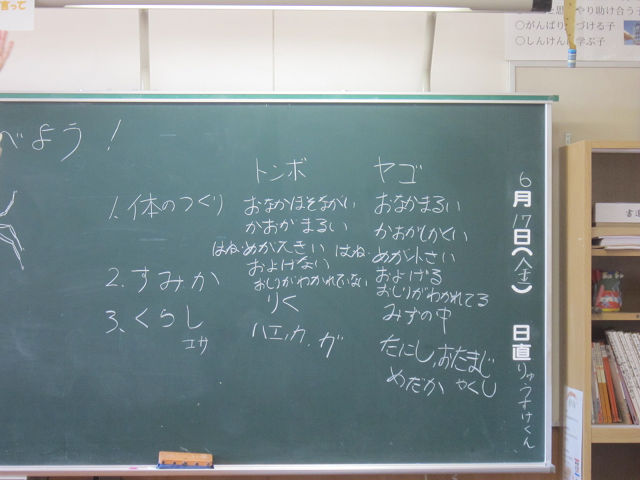 言って
やり助け合う子
○がんばりつづける子
○しんけんに学ぶ子
べよう！
トンボ
ヤゴ
1. 体のつくり
おなかほそながい
かおがまるい
はね・めが大きい
およげない
おしりがわかれていない
おなかまるい
かおがしかくい
はね・めが小さい
およげる
おしりがわかれてる
2. すみか
りく
みずの中
3. くらし
エサ
ハエ、カ、ガ
たにし、おたまじゃくし
めだか
6月17日(金)
日直
りゅうすけくん